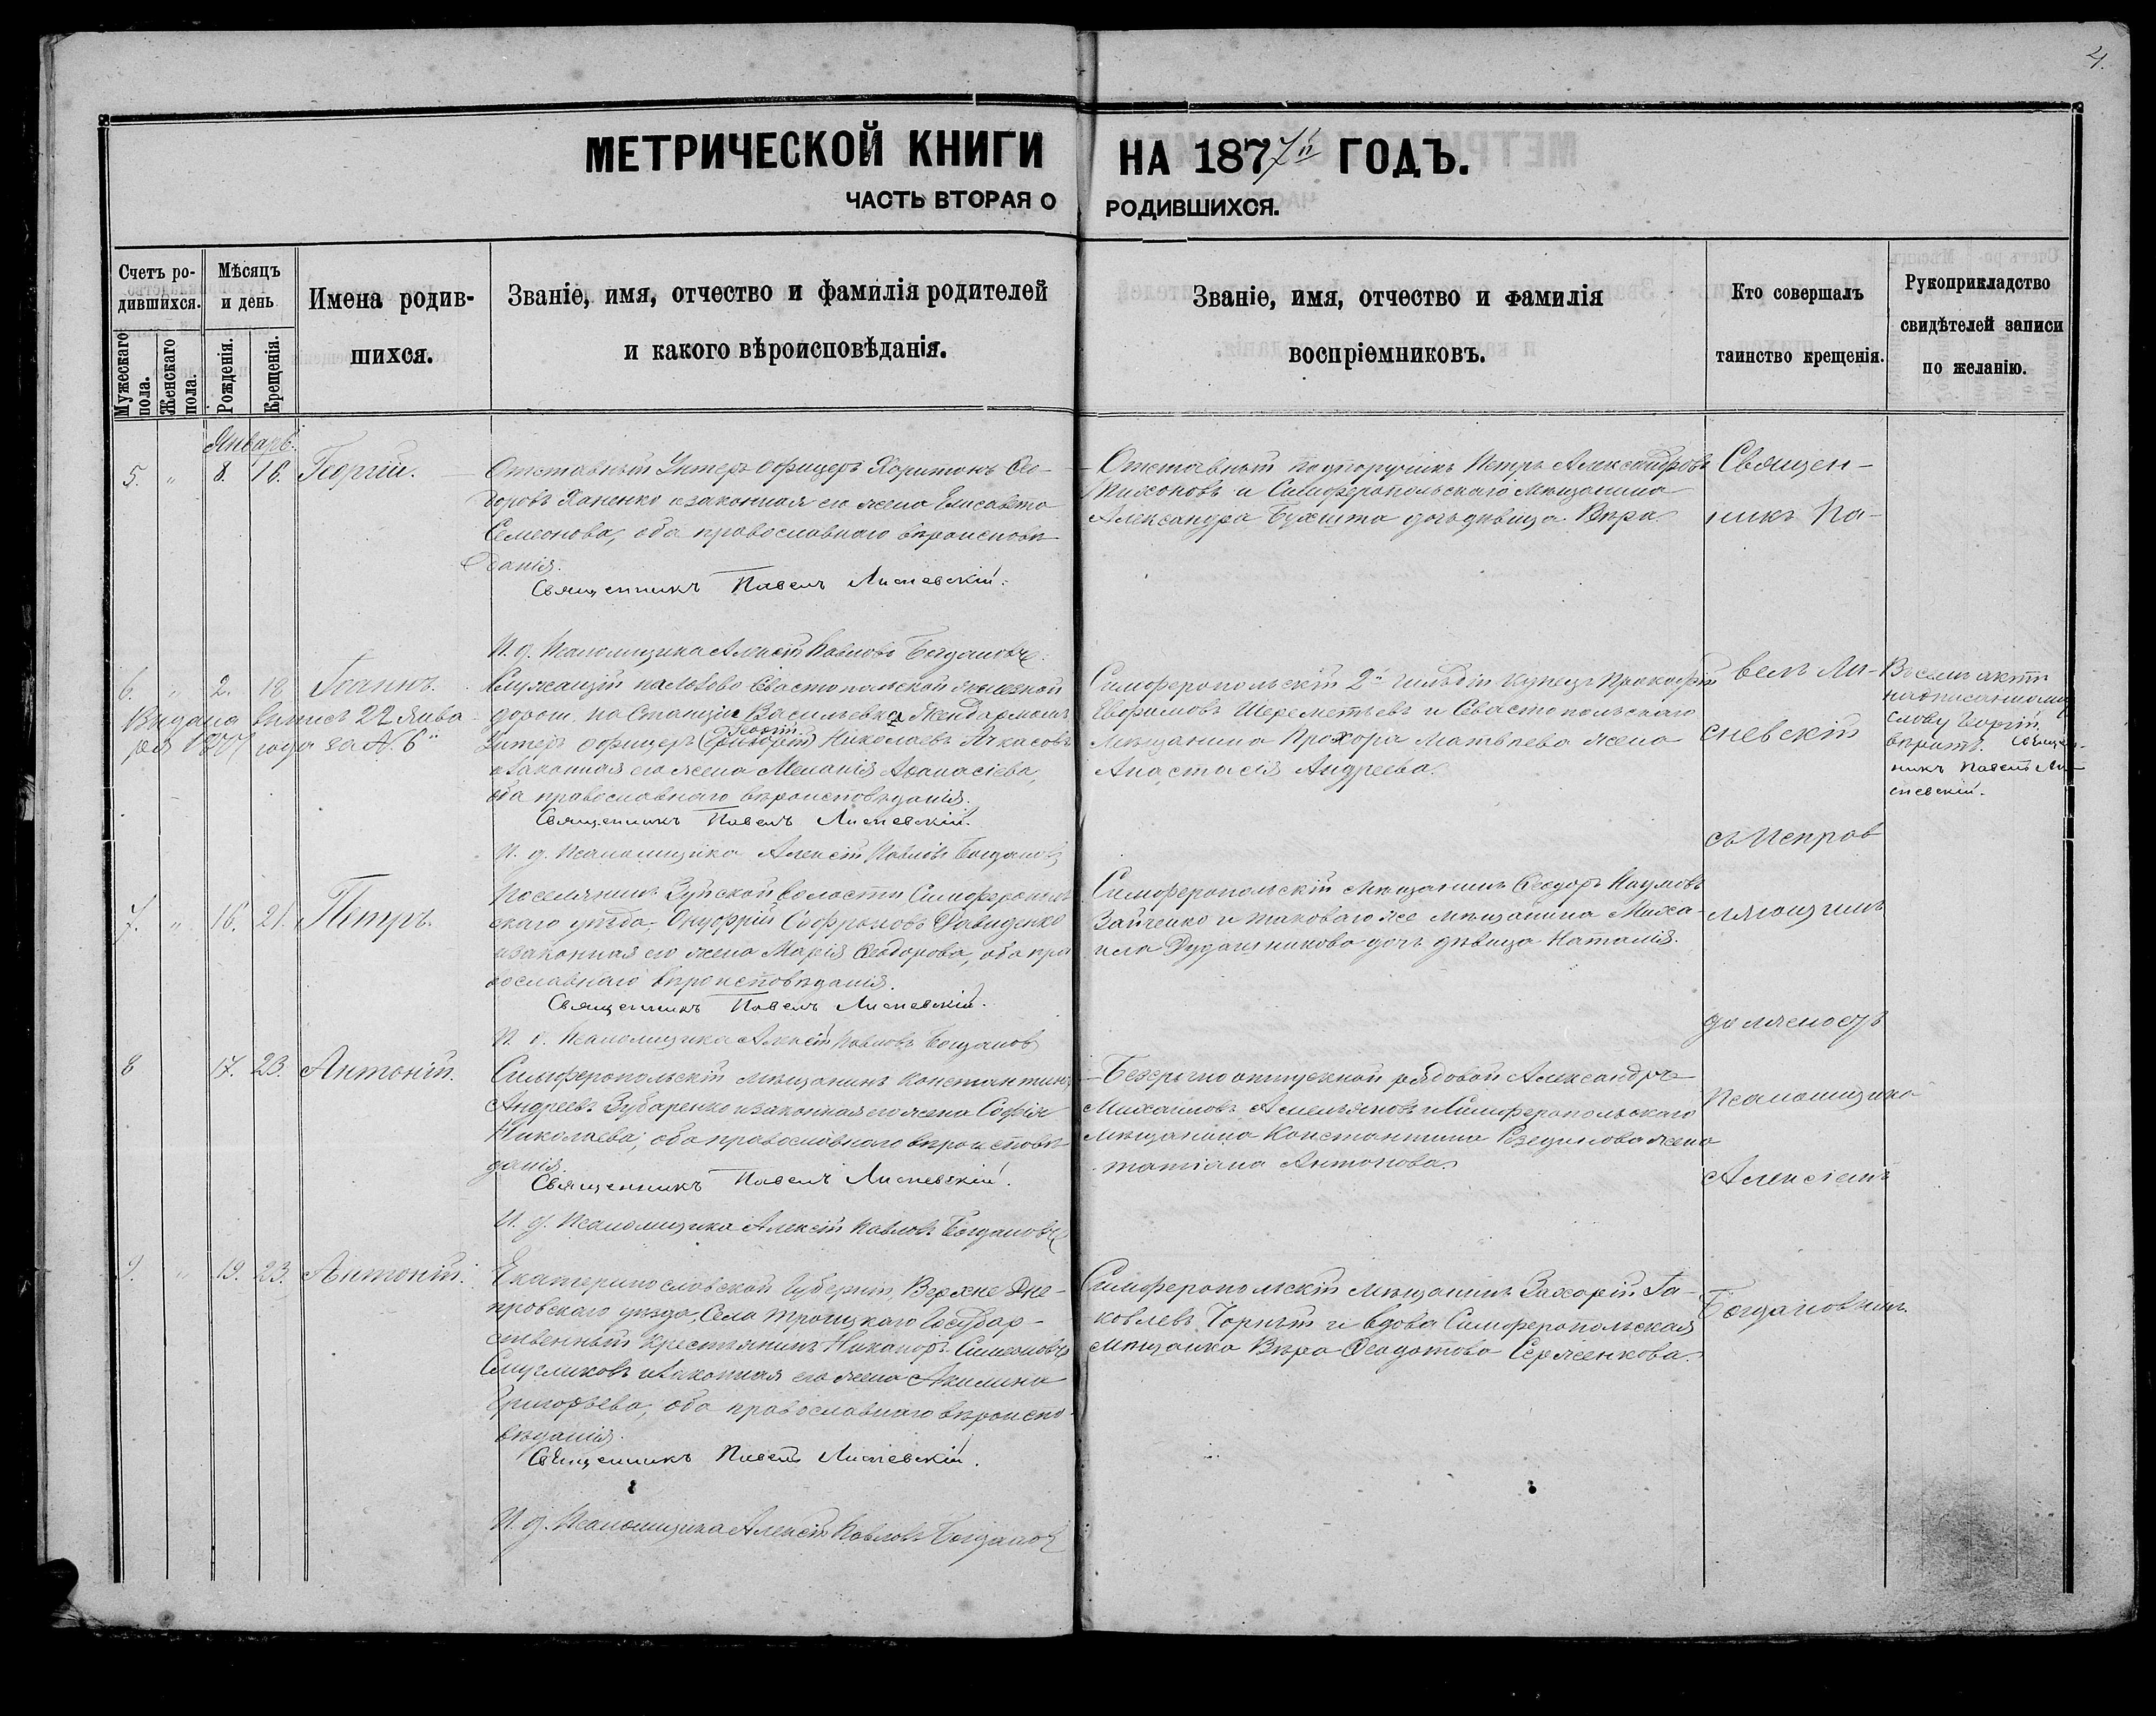 4.
МЕТРИЧЕСКОЙ КНИГИ НА 1877й ГОДЪ.
ЧАСТЬ ВТОРАЯ О РОДИВШИХСЯ.
Счетъ ро-
дившихся.
Мужескаго пола.
Женскаго пола.
Мѣсяцъ
и день
Рожденія.
Крещенія.
Имена родив-
шихся.
Званіе, имя, отчество и фамилія родителей
и какого вѣроисповѣданія.
Званіе, имя, отчество и фамилія
воспріемниковъ.
Кто совершалъ
таинство крещенія.
Рукоприкладство
свидѣтелей записи
по желанію.
Январь.
5. " 8. 16. Георгій.
Отставный Унтеръ офицеръ Харитонъ Ѳе-
доровъ Ханенко и законная его жена Елисавета
Семеонова, оба православнаго вѣроисповѣ-
данія.
Священникъ Павелъ Лисневскій.
И. д. Псаломщика Алексѣй Павловъ Богдановъ.
Отставный подпоручикъ Петръ Александровъ
Тихоновъ и Симферопольскаго мѣщанина
Александра дочь дѣвица Вѣра.
6. " 2. 18 Іоаннъ.
Выдана выпись 22 Янва
ря 1877 года за № 6"
Служащій на Лозово Севастопольской желѣзной
дорогѣ, на Станціи Васильевка Жандармомъ,
Унтеръ офицеръ Николаевъ
и законная его жена Меланія Аѳанасіева,
оба православнаго вѣроисповѣданія.
Священникъ Павелъ Лисневскій.
И. д. Псаломщика Алексѣй Павловъ Богдановъ
Симферопольскій 2й гильдіи купецъ Прокофій
Евфимовъ Шереметьевъ и Севастопольскаго
мѣщанина Прохора Матвѣева жена
Анастасія Андреева.
Въ семъ актѣ
надписанному
слову Георгій
вѣрить. Священ-
никъ Павелъ Ли-
сневскій.
7. " 16. 21. Петръ.
Поселянинъ Зуйской волости Симферополь
скаго уѣзда, Онуфрій Софроновъ Давиденко
и законная его жена Марія Ѳеодорова, оба пра
вославнаго вѣроисповѣданія.
Священникъ Павелъ Лисневскій.
И. д. Псаломщика Алексѣй Павловъ Богдановъ
Симферопольскій мѣщанинъ Ѳеодоръ Наумовъ
Зайченко и таковаго же мѣщанина Миха-
ила дочь дѣвица Наталія.
8 17. 23. Антоній.
Симферопольскій мѣщанинъ Константинъ
Андреевъ Зубаренко и законная его жена Софія
Николаева, оба православнаго вѣроисповѣ
данія.
Священникъ Павелъ Лисневскій.
И. д. Псаломщика Алексѣй Павловъ Богдановъ
Безсрочно отпускной рядовой Александръ
Михаиловъ Асмельяновъ и Симферопольскаго
мѣщанина Константина жена
татіана Антонова.
9. " 19. 23. Антоній.
Екатеринославской Губерніи, Верхне Дне-
провскаго уѣзда, Села Троицкаго Государ-
ственный крестьянинъ Никаноръ Симеоновъ
и законная его жена Акилина
Григорьева, оба православнаго вѣроиспо-
вѣданія.
Священникъ Павелъ Лисневскій.
И. д. Псаломщика Алексѣй Павловъ Богдановъ
Симферопольскій мѣщанинъ Захарій Іа-
ковлевъ Чорный и вдова Симферопольская
мѣщанка Вѣра Ѳеодотова Серженкова.
Священ-
никъ Па-
велъ Ли-
сневскій
съ Исправ
ляющимъ
должность
Псаломщика
Алексіемъ
Богдановымъ.